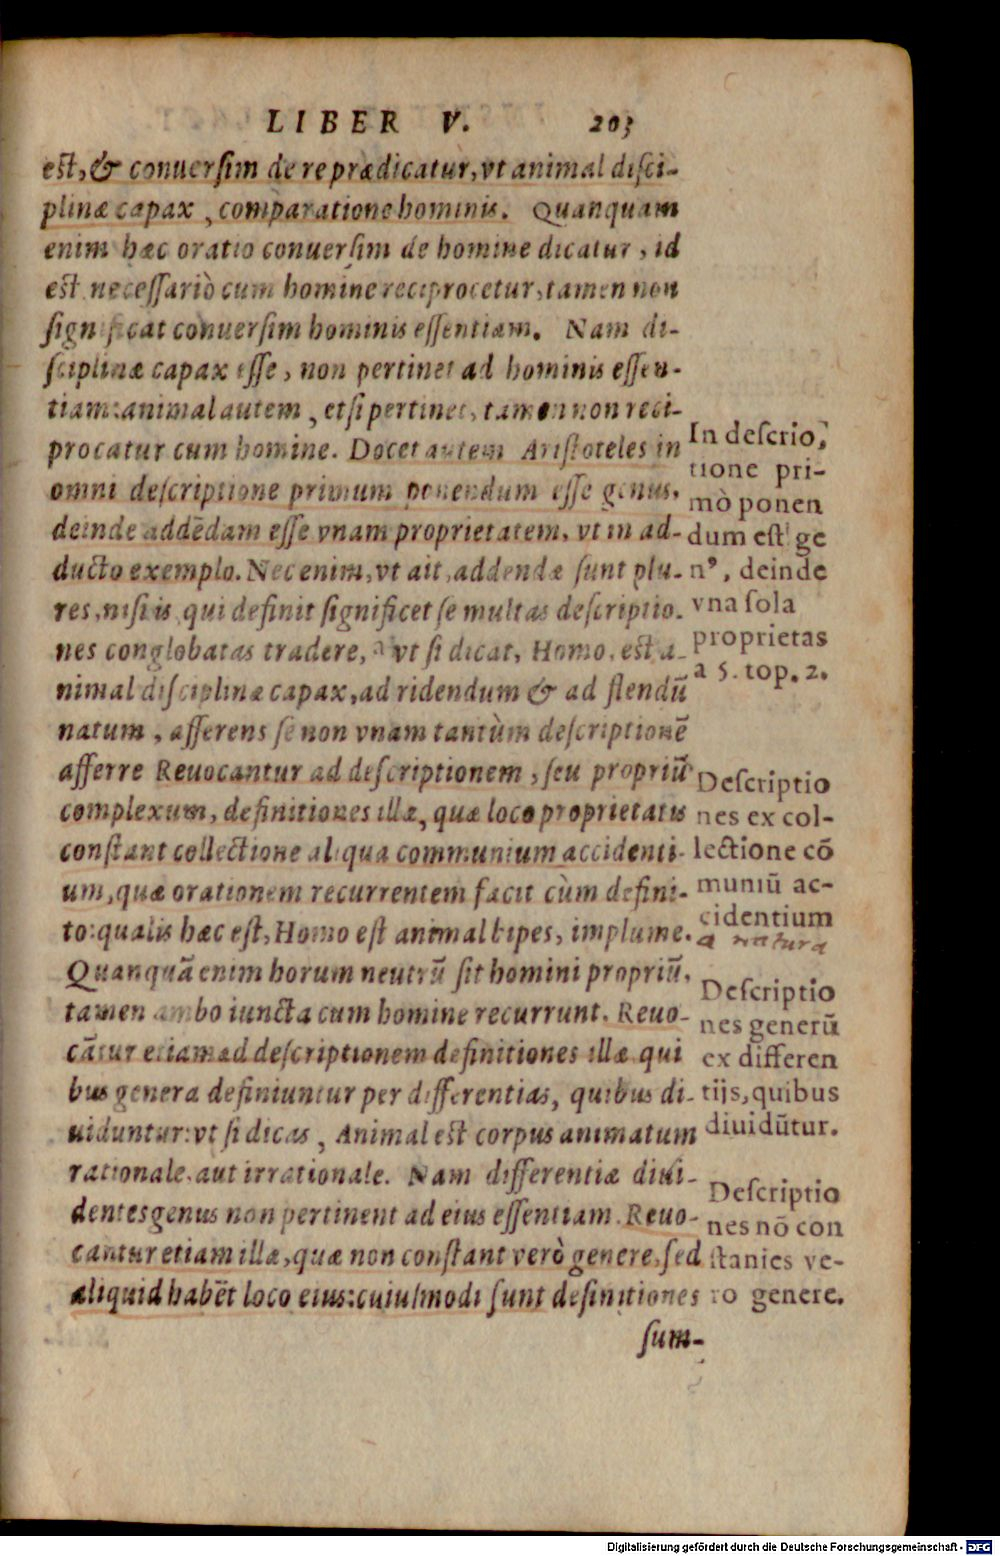 LIBER V. 203
est, & conuersim de re prædicatur, vt animal disci-
plinæ capax, comparatione hominis. Quanquam
enim hæc oratio conuersim de homine dicatur, id
est necessariò cum homine reciprocetur, tamen non
significat conuersim hominis essentiam. Nam di-
sciplinæ capax esse, non pertinet ad hominis essen-
tiam: animal autem, etsi pertinet, tamen non reci-
procatur cum homine. Docet autem Aristoteles in
omni descriptione primum ponendum esse genus,
deinde addēdam esse vnam proprietatem, vt in ad-
ducto exemplo. Nec enim, vt ait, addendæ sunt plu-
res, nisi is qui definit significet se multas descriptio-
nes conglobatas tradere, vt si dicat, Homo, est a-
nimal disciplinæ capax, ad ridendum & ad flendū
natum, afferens se non vnam tantùm descriptionē
afferre Reuocantur ad descriptionem, seu propriū
complexum, definitiones illæ, quæ loco proprietatis
constant collectione aliqua communium accidenti-
um, quæ orationem recurrentem facit cùm defini-
to: qualis hæc est, Homo est animal bipes, implume.
Quanquā enim horum neutrū sit homini propriū,
tamen ambo iuncta cum homine recurrunt. Reuo-
cātur etiam ad descriptionem definitiones illæ qui
bus genera definiuntur per differentias, quibus di-
uiduntur: vt si dicas, Animal est corpus animatum
rationale, aut irrationale. Nam differentiæ diui-
dentes genus non pertinent ad eius essentiam. Reuo-
cantur etiam illæ, quæ non constant verò genere, sed
aliquid habēt loco eius: cuiusmodi sunt definitiones
sum-
In descrio,
tione pri-
mò ponen
dum est ge
nꝰ, deinde
vna sola
proprietas
a 5. top. 2.
Descriptio
nes ex col-
lectione cō
muniū ac-
cidentium
a natura
Descriptio
nes generū
ex differen
tijs, quibus
diuidūtur.
Descriptio
nes nō con
stantes ve-
ro genere.
Digitalisierung gefördert durch die Deutsche Forschungsgemeinschaft - DFG